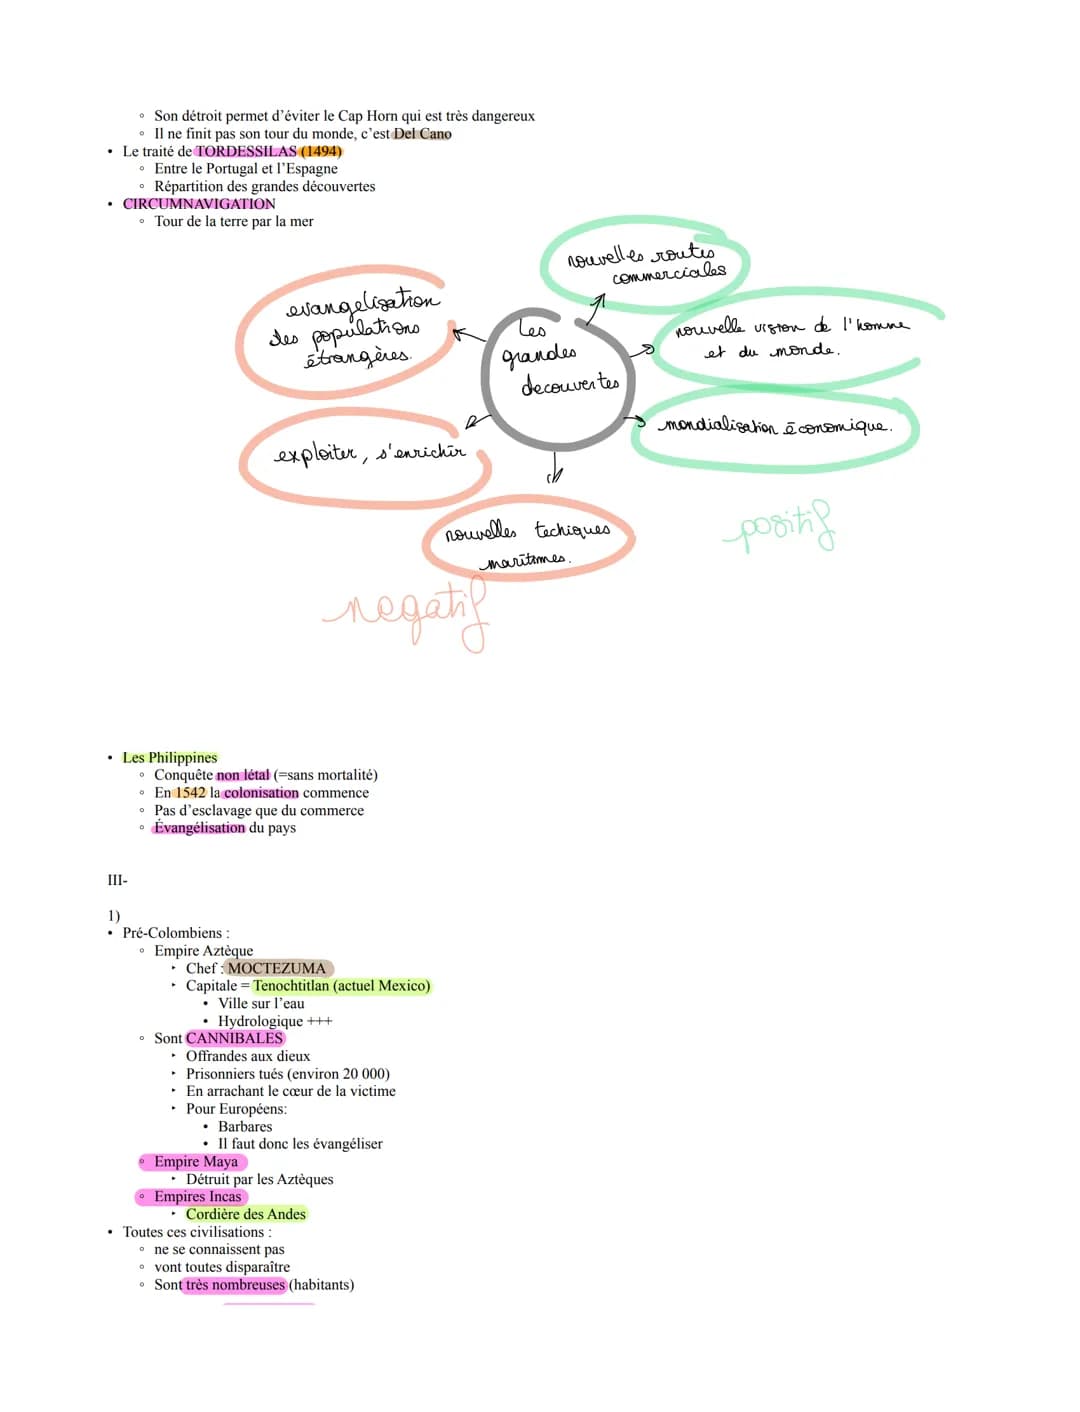 ◦ Son détroit permet d'éviter le Cap Horn qui est très dangereux
◦ Il ne finit pas son tour du monde, c'est Del Cano
• Le traité de TORDESSILAS (1494)
◦ Entre le Portugal et l'Espagne
◦ Répartition des grandes découvertes
• CIRCUMNAVIGATION
◦ Tour de la terre par la mer
nouvelles routes
commerciales
evangelisation
des populations
étrangères.
Les
grandes
decouvertes
nouvelle vision de l'homme
et du monde.
mondialisation économique.
exploiter, s'enrichir
nouvelles techiques
maritimes.
positif
negatif
• Les Philippines
◦ Conquête non létal (=sans mortalité)
◦ En 1542 la colonisation commence
◦ Pas d'esclavage que du commerce
◦ Évangélisation du pays
III-
1)
• Pré-Colombiens :
◦ Empire Aztèque
‣ Chef : MOCTEZUMA
‣ Capitale = Tenochtitlan (actuel Mexico)
• Ville sur l'eau
• Hydrologique +++
◦ Sont CANNIBALES
‣ Offrandes aux dieux
‣ Prisonniers tués (environ 20 000)
‣ En arrachant le cœur de la victime
‣ Pour Européens:
• Barbares
• Il faut donc les évangéliser
◦ Empire Maya
‣ Détruit par les Aztèques
◦ Empires Incas
‣ Cordière des Andes
• Toutes ces civilisations :
◦ ne se connaissent pas
◦ vont toutes disparaître
◦ Sont très nombreuses (habitants)